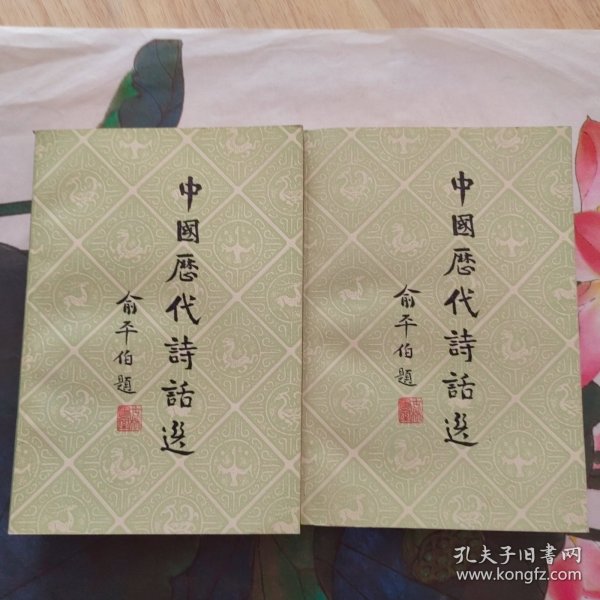 中國歷代詩話選
俞平伯題
中國歷代詩話選
俞平伯題
孔夫子旧書网
www.kongfz.com